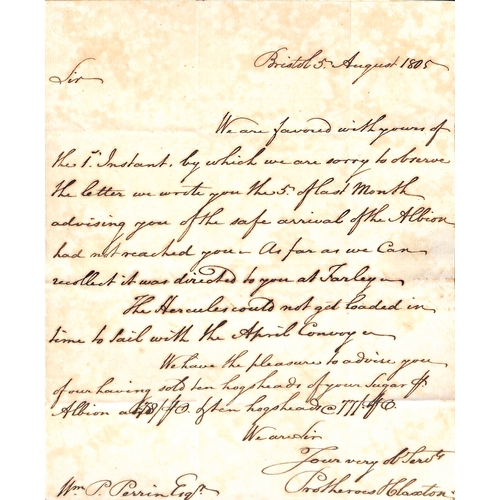 Bristol 5 August 1805
Sir
We are favored with yours of
the 1st Instant, by which we are sorry to observe
the letter we wrote you the 5th of last Month
advising you of the safe arrival of the Albion
had not reached you - As far as we Can
recollect it was directed to you at Farley -
The Hercules could not get loaded in
time to sail with the April Convoy -
We have the pleasure to advise you
of our having sold ten hogsheads of your Sugar pr
Albion at 78/ & ten hogsheads @ 77/
We are Sir
Your very obt Servts
Protheroe & Claxton
Wm P. Perrin Esqr